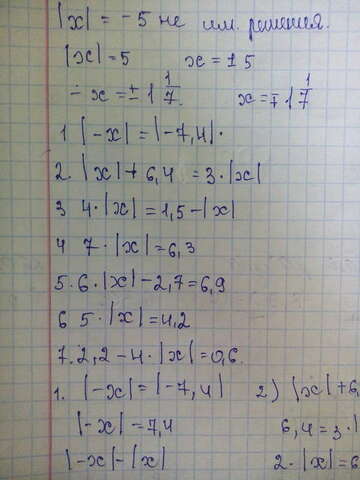 |x| = -5 не им. решения.
|x| = 5 x = ±5
-x = ±1 1/7. x = ∓1 1/7
1 |-x| = |-7,4|.
2. |x| + 6,4 = 3·|x|
3 4·|x| = 1,5 - |x|
4 7·|x| = 6,3
5. 6·|x| - 2,7 = 6,9
6 5·|x| = 4,2
7. 2,2 - 4·|x| = 0,6.
1. |-x| = |-7,4| 2) |x| + 6,
|-x| = 7,4 6,4 = 3·|
|-x| - |x| 2·|x| = 6